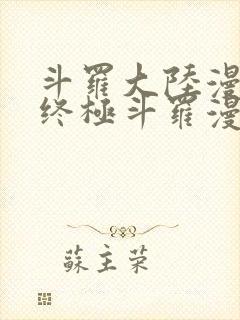 斗羅大陸漫
终極斗羅漫
蘇主荣